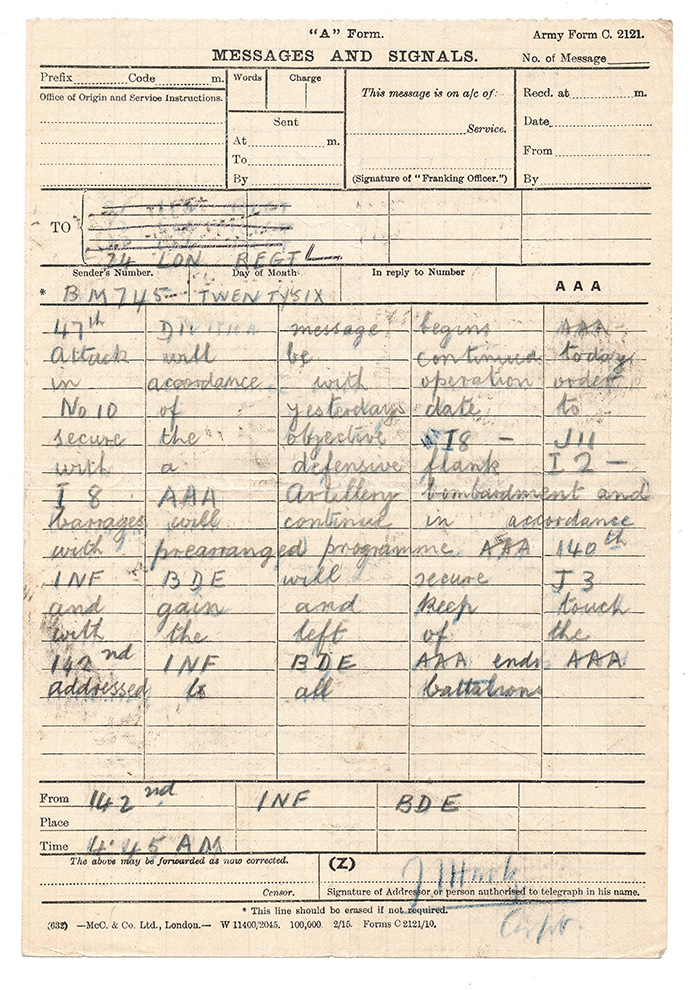 "A" Form. Army Form C. 2121.
MESSAGES AND SIGNALS. No. of Message
Prefix Code m. Words Charge This message is on a/c of: Recd. at m.
Office of Origin and Service Instructions. Sent Service. Date
At m. From
To
By (Signature of "Franking Officer.") By
TO
24 LON REGT
Sender's Number. Day of Month. In reply to Number AAA
* BM745 TWENTYSIX
47th DIVISION message begins AAA
Attack will be continued today
in accordance with operation order
No 10 of yesterdays date to
secure the objective I8 - J11
with a defensive flank I2 -
I8 AAA Artillery bombardment and
barrages will continue in accordance
with prearranged programme AAA 140th
INF BDE will secure J3
and gain and keep touch
with the left of the
142nd INF BDE AAA ends AAA
addressed to all battalions
From 142nd INF BDE
Place
Time 4.45 AM
The above may be forwarded as now corrected. (Z)
Censor. Signature of Addressor or person authorised to telegraph in his name.
* This line should be erased if not required.
(632) —McC. & Co. Ltd., London.— W 11400/2045. 100,000. 2/15. Forms C 2121/10.
Capt.